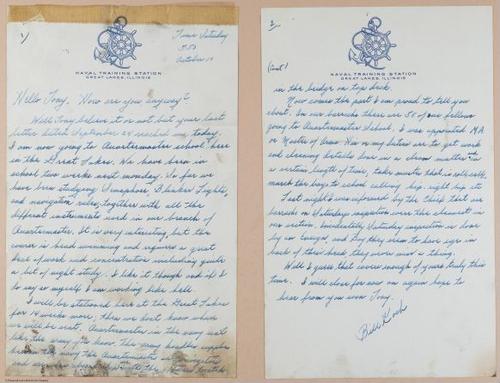 1)
NAVAL TRAINING STATION
GREAT LAKES, ILLINOIS
Time Saturday
October 10
Hello Tony, How are you anyway?
Well Tony believe it or not but your last
letter dated September 28 reached me today.
I am now going to Quartermaster school here
in the Great Lakes. We have been in
school two weeks next monday. So far we
have been studying Semaphore, Blinker Lights,
and navigation rules, together with all the
different instruments used in our branch of
Quartermaster. It is very interesting but the
course is brain and requires a great
deal of work and concentration including quite
a bit of night study. I like it though and if I
do say so myself I am working like hell.
I will be stationed here at the Great Lakes
for 14 weeks more, then we dont know where
we will be sent. Quartermaster in the navy isnt
like the army you know. The army handles supplies
the navy the Quartermaster is
2)
(Cont')
NAVAL TRAINING STATION
GREAT LAKES, ILLINOIS
in the bridge or top deck.
Now comes the part I am proud to tell you
about. In our barracks there are 58 of us fellows
going to Quartermaster School. I was appointed MA
or Master of Arms. Now my duties are to get work
and cleaning details done in a clean matter in
a certain length of time, take muster that is roll call,
march the boys to school calling hip right hip etc.
Last night I was informed by the Chief that our
barracks on Saturdays inspection were the cleanest in
our section. Incidentaly Saturday inspection is done
by an Ensign, and boy they seem to have eyes in
back of their head, they never miss a thing.
Well I guess that covers enough of yours truly this
time. I will close for now and again hope to
hear from you soon Tony.
Bill Koch